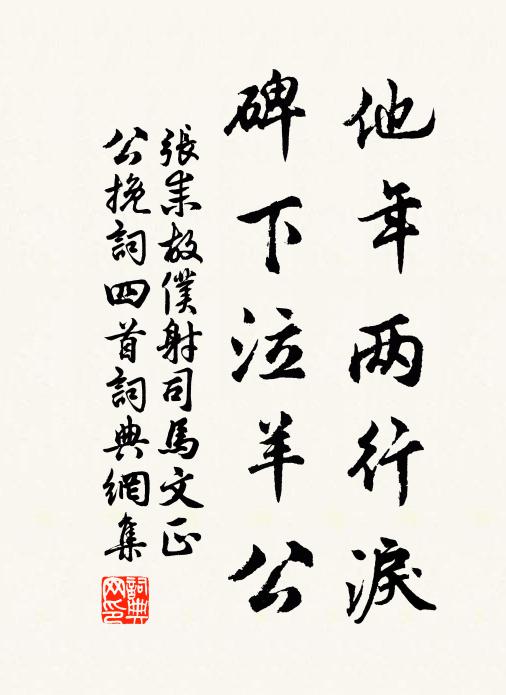 他年两行淚
碑下泣羊公
張耒故僕射司馬文正
公挽詞四首詞典網集
詞典
网印